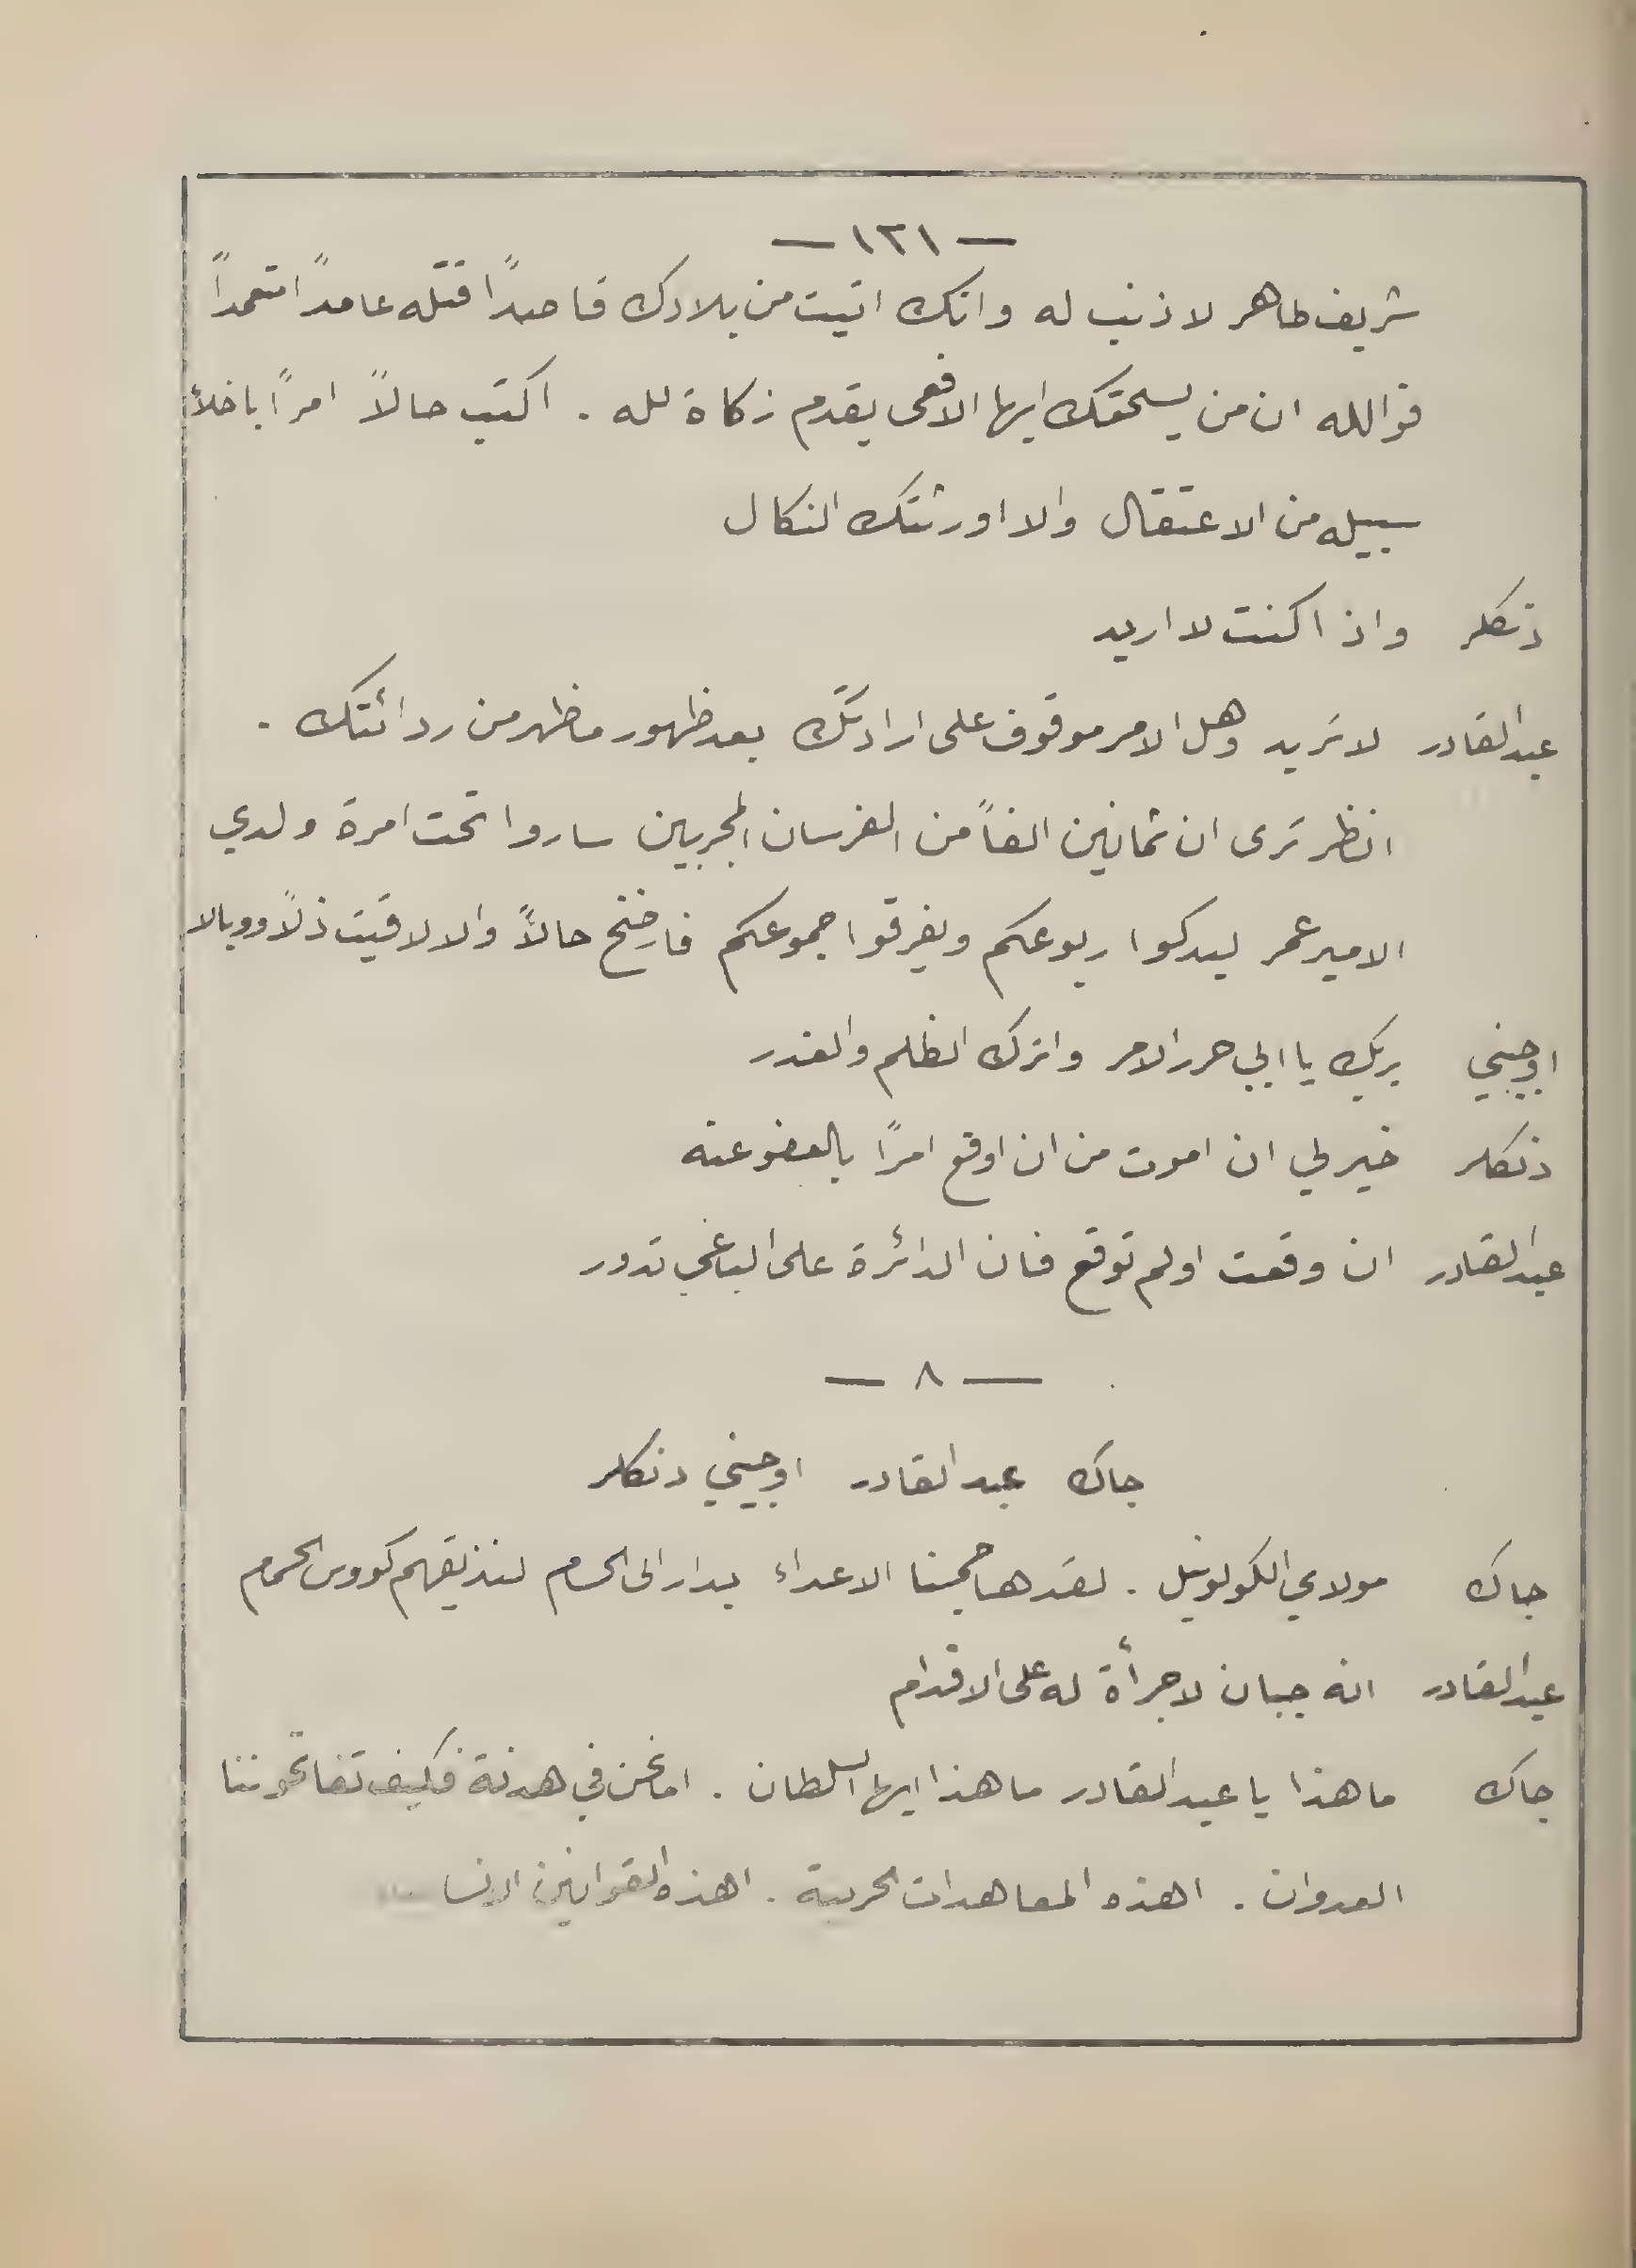 — ١٢١ —
شريف طاهر لا ذنب له وانك اتيت من بلادك قاصداً قتله عامداً متعمداً
فوالله ان من يسحقك ايها الافعى يقدم زكاة لله . اكتب حالاً امراً باخلاء
سبيله من الاعتقال والا اورثتك النكال
دنكلر واذا كنت لا اريد
عبدالقادر لا تريد وهل الامر موقوف على ارادتك بعد ظهور ما ظهر من ردائتك .
انظر ترى ان ثمانين الفاً من الفرسان المجربين ساروا تحت امرة ولدي
الامير عمر ليدكوا ربوعكم ويفرقوا جموعكم فارضخ حالاً والا لاقيت ذلاً ووبالا
اوجيني بربك يا ابي حرر الامر واترك الظلم والغدر
دنكلر خير لي ان اموت من ان اوقع امراً بالعفو عنه
عبدالقادر ان وقعت او لم توقع فان الدائرة على الباغي تدور
— ٨ —
جاك عبدالقادر اوجيني دنكلر
جاك مولاي الكولونيل . لقد هاجمنا الاعداء بدار الى الحسام لنذيقهم كووس الحمام
عبدالقادر انه جبان لا جرأة له على الاقدام
جاك ما هذا يا عبدالقادر ما هذا ايها السلطان . اما نحن في هدنة فكيف تفاتحوننا
العدوان . اهذه المعاهدات الحربية . اهذه القوانين